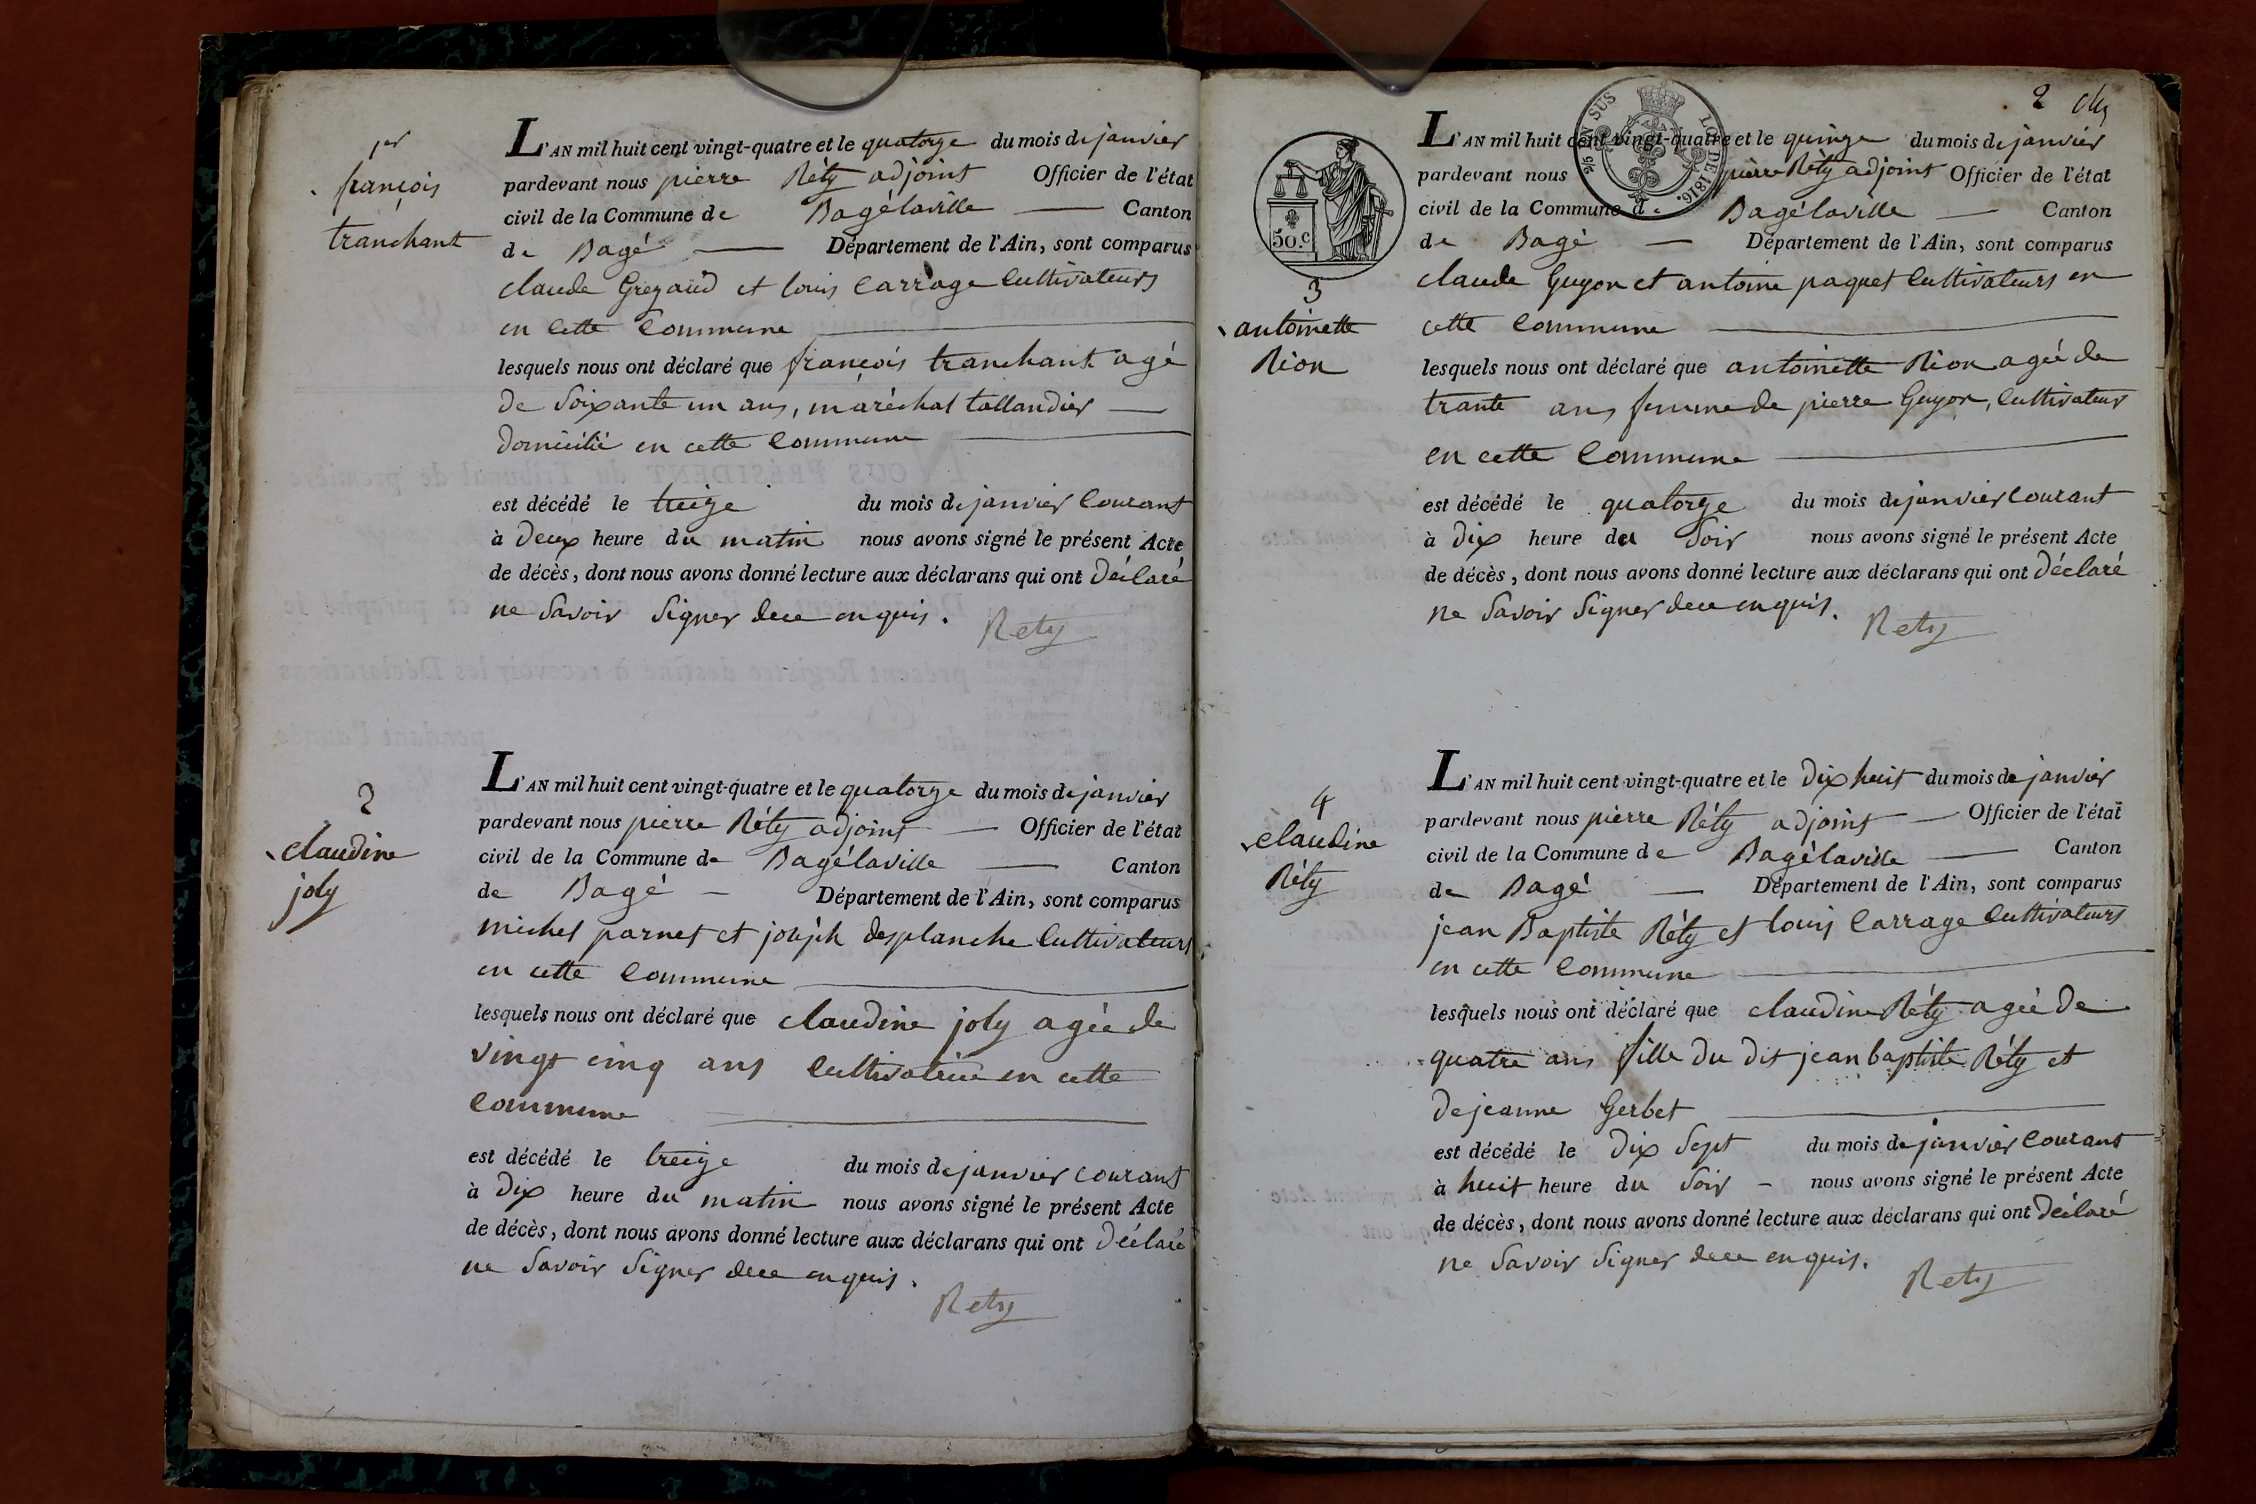 1er
françois
tranchant
L'AN mil huit cent vingt-quatre et le quatorze du mois de janvier
pardevant nous pierre Réty adjoint Officier de l'état
civil de la Commune de Bagélaville Canton
de Bagé Département de l'Ain, sont comparus
claude Grezaud et louis Carrage Cultivateurs
en cette Commune
lesquels nous ont déclaré que françois tranchant agé
de Soixante un ans, maréchal tallandier
domicilié en cette Commune
est décédé le treize du mois de janvier Courant
à Deux heure du matin nous avons signé le présent Acte
de décès, dont nous avons donné lecture aux déclarans qui ont Déclaré
ne Savoir Signer dece enquis.
Rety
2
claudine
joly
L'AN mil huit cent vingt-quatre et le quatorze du mois de janvier
pardevant nous pierre Réty adjoint Officier de l'état
civil de la Commune de Bagélaville Canton
de Bagé Département de l'Ain, sont comparus
michel parnet et joseph desplanche Cultivateurs
en cette Commune
lesquels nous ont déclaré que claudine joly agée de
vingt cinq ans Cultivatrice en cette
Commune
est décédé le treize du mois de janvier courant
à Dix heure du matin nous avons signé le présent Acte
de décès, dont nous avons donné lecture aux déclarans qui ont Déclaré
ne Savoir Signer dece enquis.
Rety
2
50.c
LOI DE 1816.
EN SUS
3
antoinette
Rion
L'AN mil huit cent vingt-quatre et le quinze du mois de janvier
pardevant nous pierre Réty adjoint Officier de l'état
civil de la Commune de Bagélaville Canton
de Bagé Département de l'Ain, sont comparus
claude Guyon et antoine paquet Cultivateurs en
cette Commune
lesquels nous ont déclaré que antoinette Rion agée de
trante ans femme de pierre Guyon, Cultivateur
en cette Commune
est décédé le quatorze du mois de janvier Courant
à Dix heure du Soir nous avons signé le présent Acte
de décès, dont nous avons donné lecture aux déclarans qui ont Déclaré
ne Savoir Signer dece enquis.
Rety
4
claudine
Réty
L'AN mil huit cent vingt-quatre et le Dix huit du mois de janvier
pardevant nous pierre Réty adjoint Officier de l'état
civil de la Commune de Bagélaville Canton
de Bagé Département de l'Ain, sont comparus
jean Baptiste Réty et louis Carrage Cultivateurs
en cette Commune
lesquels nous ont déclaré que claudine Réty agée de
quatre ans fille du dit jean baptiste Réty et
de jeanne Gerbet
est décédé le Dix Sept du mois de janvier Courant
à huit heure du Soir nous avons signé le présent Acte
de décès, dont nous avons donné lecture aux déclarans qui ont Déclaré
ne Savoir Signer dece enquis.
Rety